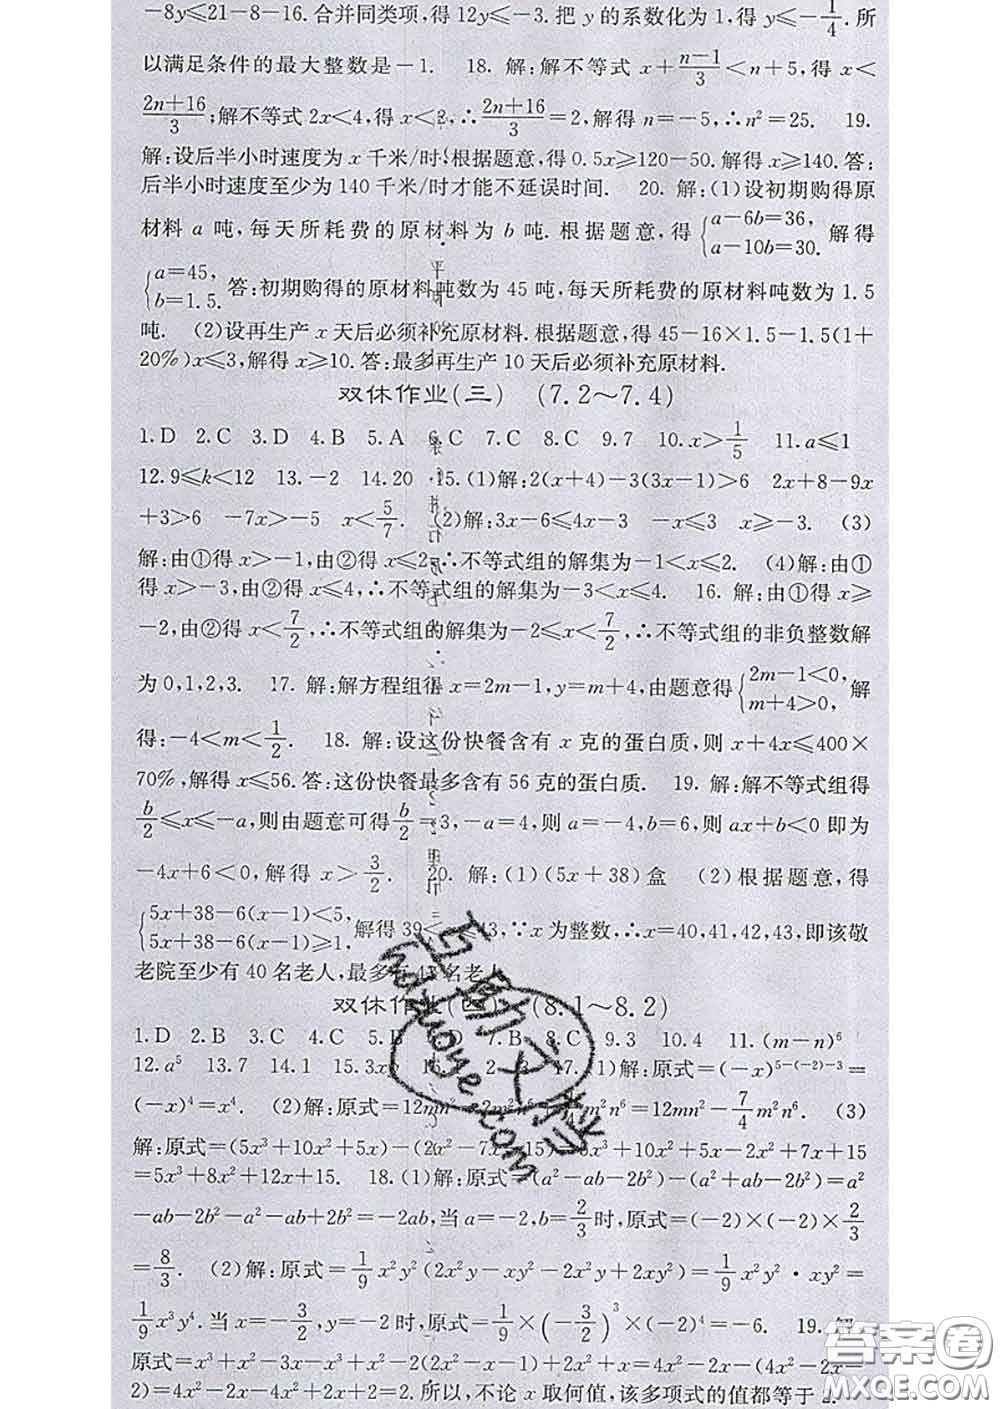 -8y≤21-8-16.合并同类项,得12y≤-3.把 y 的系数化为1,得 y≤-1/4.所
以满足条件的最大整数是-1. 18. 解:解不等式 x+(n-1)/3<n+5,得 x<
(2n+16)/3;解不等式 2x<4,得 x<2,∴(2n+16)/3=2,解得 n=-5,∴n²=25. 19.
解:设后半小时速度为 x 千米/时.根据题意,得0.5x≥120-50.解得x≥140.答:
后半小时速度至少为140千米/时才能不延误时间. 20. 解:(1)设初期购得原
材料 a 吨,每天所耗费的原材料为 b 吨.根据题意,得{a-6b=36, a-10b=30.解得
{a=45, b=1.5.答:初期购得的原材料吨数为45吨,每天所耗费的原材料吨数为1.5
吨. (2)设再生产 x 天后必须补充原材料.根据题意,得45-16×1.5-1.5(1+
20%)x≤3,解得 x≥10.答:最多再生产10天后必须补充原材料.
双休作业(三) (7.2～7.4)
1.D 2.C 3.D 4.B 5.A 6.C 7.C 8.C 9.7 10.x>1/5 11.a≤1
12.9≤k<12 13.-2 14.20 15.(1)解:2(x+4)-3(3x-1)>6 2x+8-9x
+3>6 -7x>-5 x<5/7. (2)解:3x-6≤4x-3 -x≤3 x≥-3. (3)
解:由①得 x>-1,由②得 x≤2,∴不等式组的解集为-1<x≤2. (4)解:由①
得 x>-3,由②得 x≤4,∴不等式组的解集为-3<x≤4. 16. 解:由①得 x≥
-2,由②得 x<7/2,∴不等式组的解集为-2≤x<7/2,∴不等式组的非负整数解
为0,1,2,3. 17. 解:解方程组得 x=2m-1,y=m+4,由题意得{2m-1<0, m+4>0,解
得:-4<m<1/2. 18. 解:设这份快餐含有 x 克的蛋白质,则 x+4x≤400×
70%,解得 x≤56.答:这份快餐最多含有56克的蛋白质. 19. 解:解不等式组得
b/2≤x≤-a,则由题意可得b/2=3,-a=4,则 a=-4,b=6,则 ax+b<0 即为
-4x+6<0,解得 x>3/2. 20. 解:(1)(5x+38)盒 (2)根据题意,得
{5x+38-6(x-1)<5, 5x+38-6(x-1)≥1.解得39<≤43,∵x为整数,∴x=40,41,42,43,即该敬
老院至少有40名老人,最多有43名老人
双休作业(四) (8.1～8.2)
1.D 2.B 3.C 4.C 5.B D 7.B 8.C 9.3 10.4 11.(m-n)⁶
12.a⁵ 13.7 14.1 15.3x 2 17.(1)解:原式=(-x)⁵⁻⁽⁻²⁾⁻³=
(-x)⁴=x⁴. (2)解:原式=12mn²-2m²n⁶ m²n⁶=12mn²-7/4m²n⁶. (3)
解:原式=(5x³+10x²+5x)-(2x²-7x-15)=5x³+10x²+5x-2x²+7x+15
=5x³+8x²+12x+15. 18.(1)解:原式=(a²-ab-2b²)-(a²+ab-2b²)=a²
-ab-2b²-a²-ab+2b²=-2ab,当 a=-2,b=2/3时,原式=(-2)×(-2)×2/3
=8/3. (2)解:原式=1/9x²y²(2x²y-xy²-2x²y+2xy²)=1/9x²y²·xy²=
1/9x³y⁴.当 x=-3/2,y=-2时,原式=1/9×(-3/2)³×(-2)⁴=-6. 19. 解:
原式=x³+x²-3x-x³-2(2x²-x-1)+x²+x=4x²-2x-(4x²-2x-
2)=4x²-2x-4x²+2x+2=2.所以,不论 x 取何值,该多项式的值都等于2.
互助文档
hdzuoye.com
答案圈
MXQE.COM